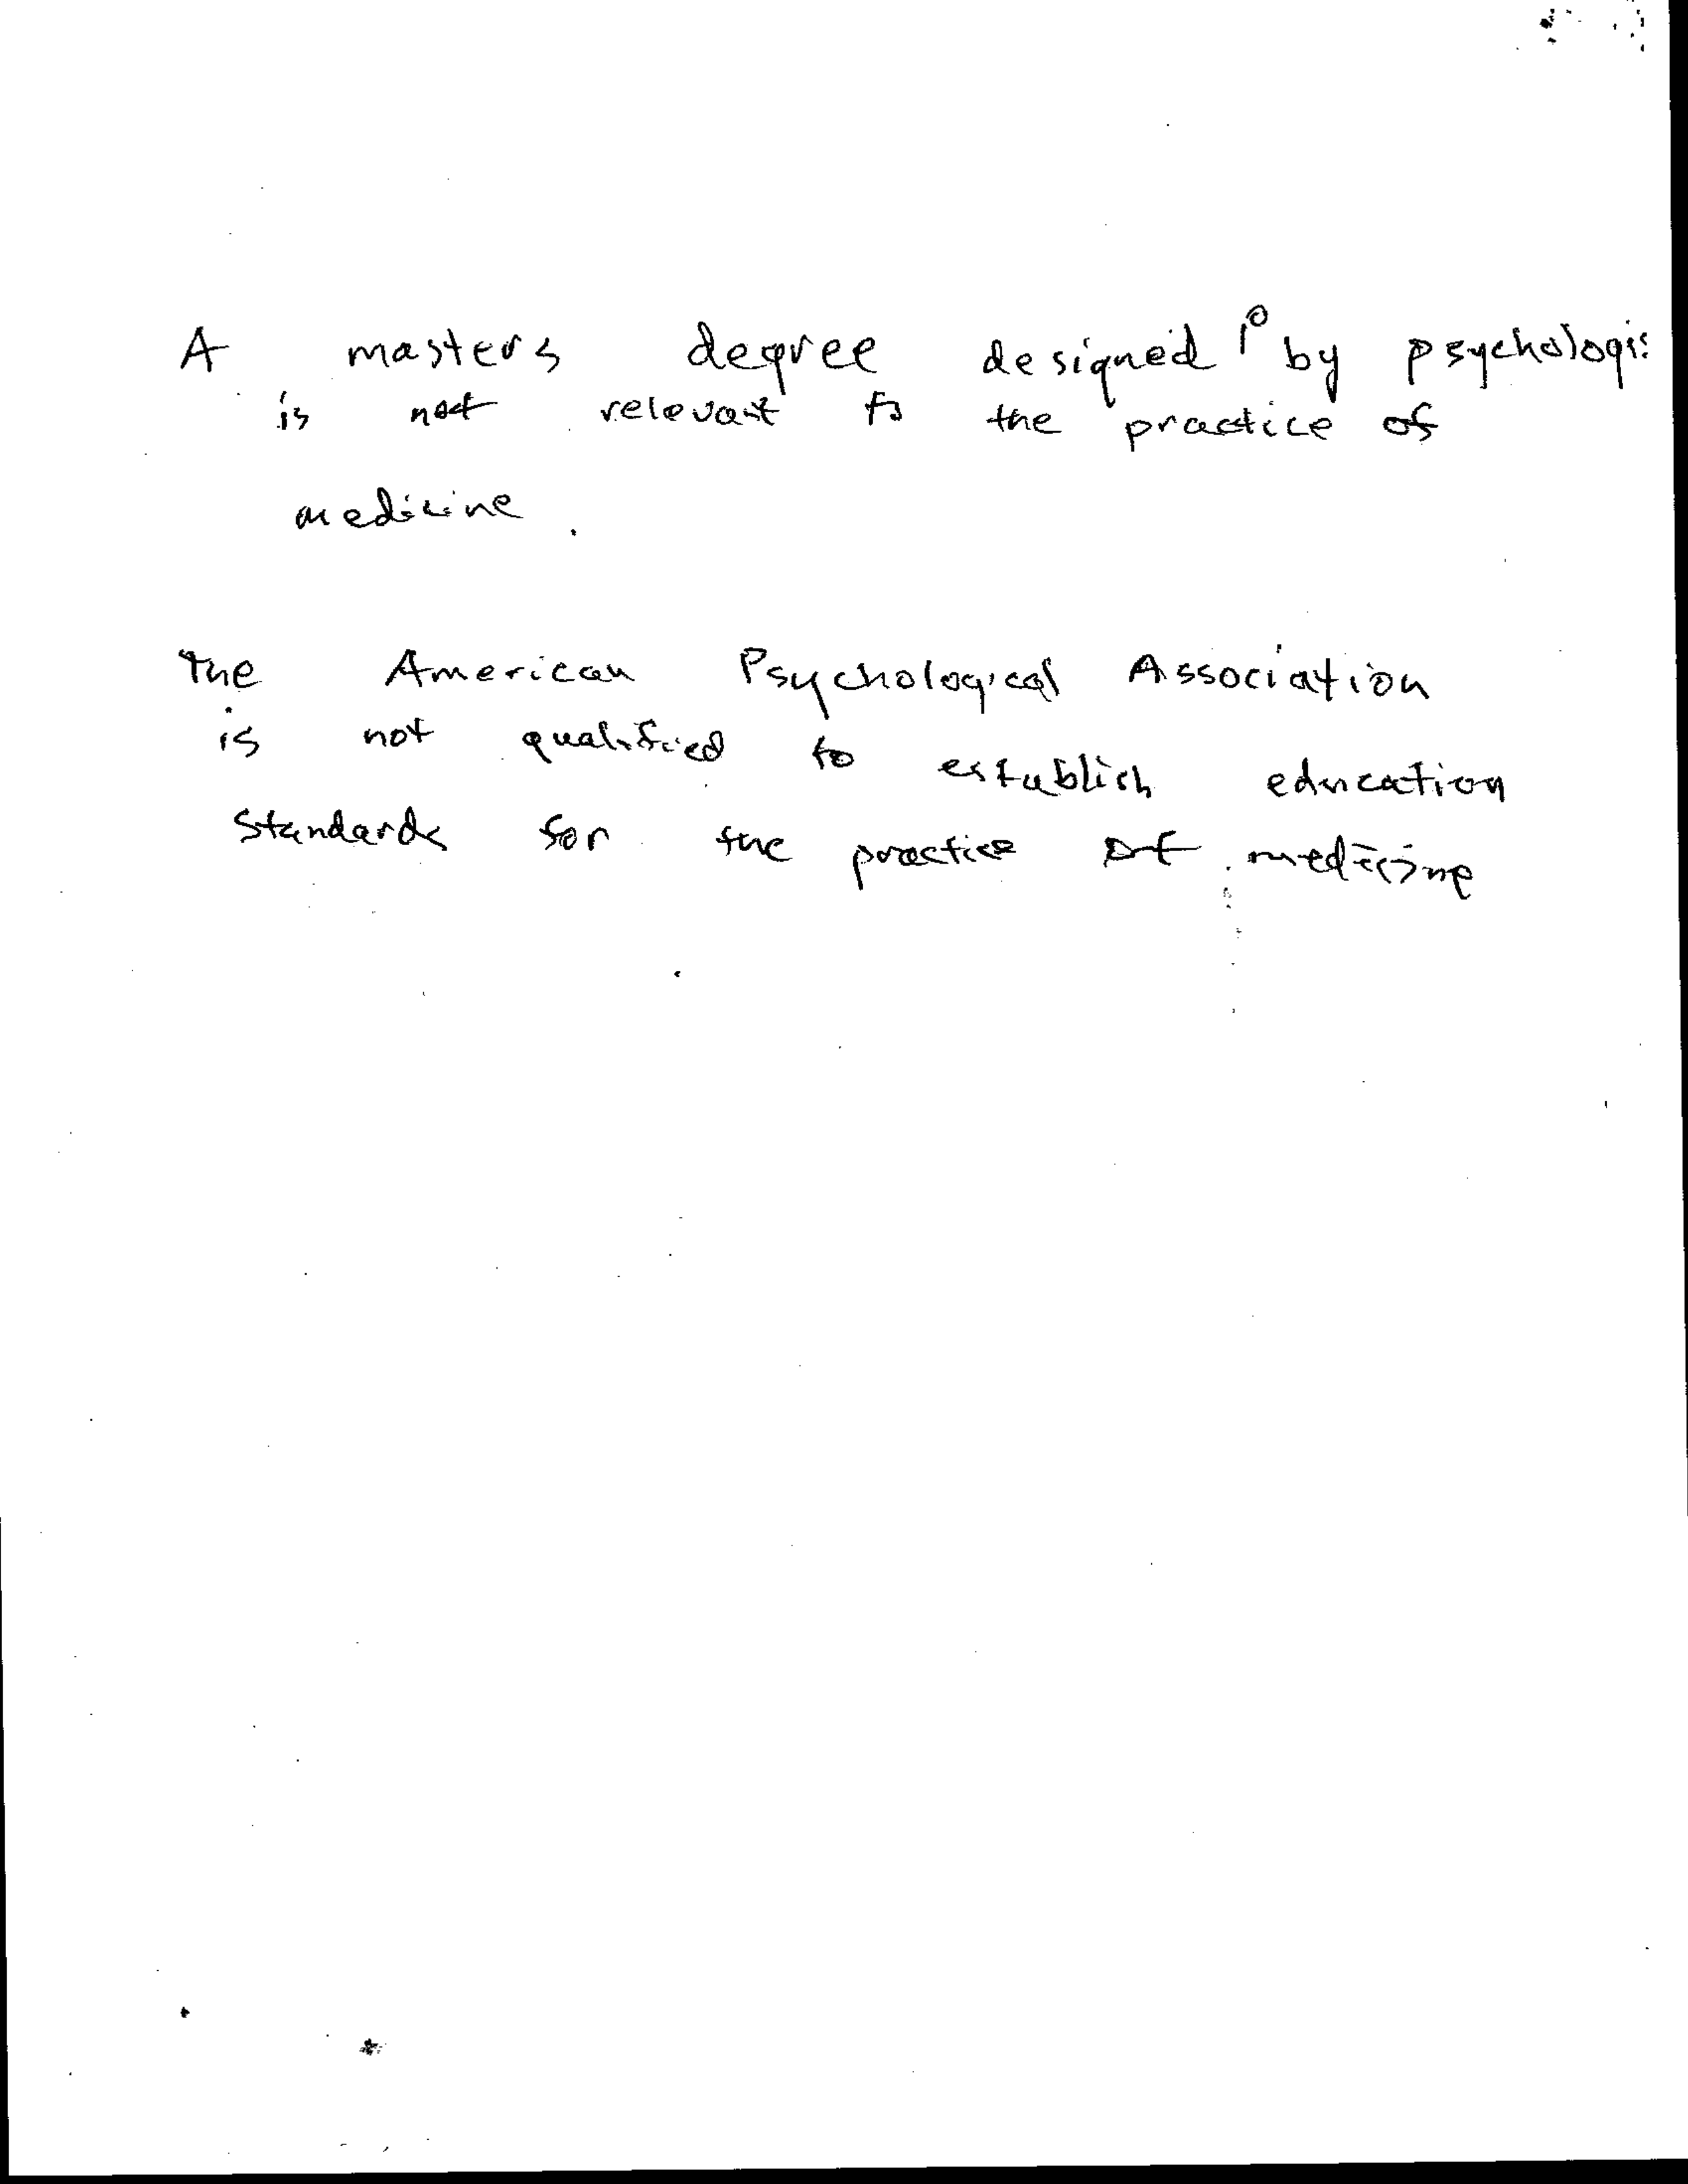 A masters degree designed by psychologis
is not relevant to the practice of
medicine.
The American Psychological Association
is not qualified to establish education
standards for the practice of medicine